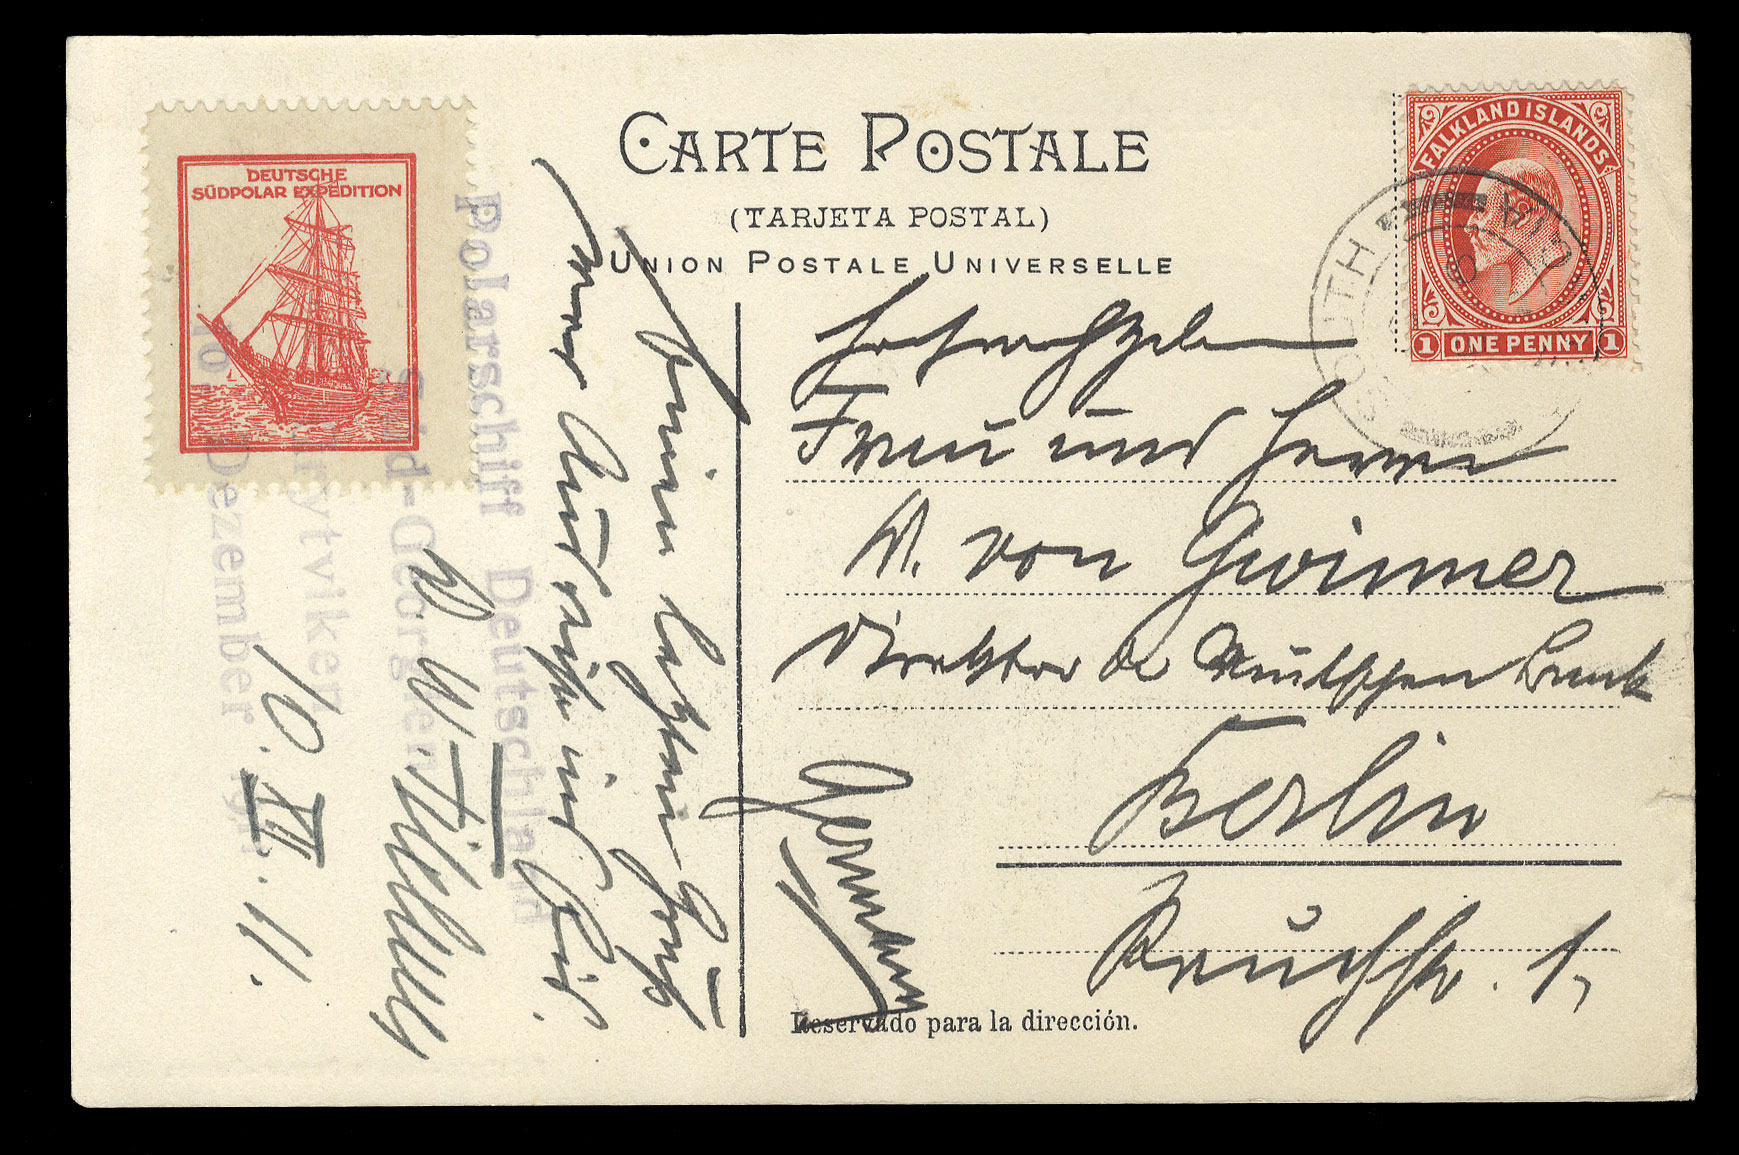 CARTE POSTALE
(TARJETA POSTAL)
UNION POSTALE UNIVERSELLE
DEUTSCHE
SÜDPOLAR EXPEDITION
FALKLAND ISLANDS
1 ONE PENNY 1
SOUTH
Polarschiff Deutschland
Süd-Georgien
Grytviken
10 Dezember
einen letzten Gruß
vor Ausreise ins Eis.
W. Filchner
10. XII. 11.
Frau und Herrn
A. von Gwinner
Direktor der Deutschen Bank
Berlin
Rauchstr. 1,
Germany
Reservado para la dirección.